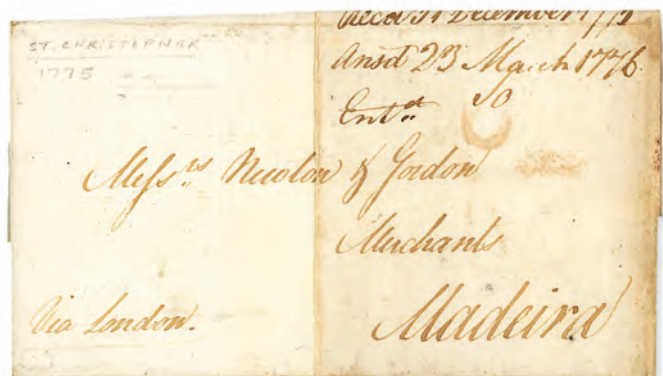 ST. CHRISTOPHER
1775
Recd 31 December 1775
Ansd 23 March 1776
Entd Do
Messrs Newton & Gordon
Merchants
Madeira
Via London.